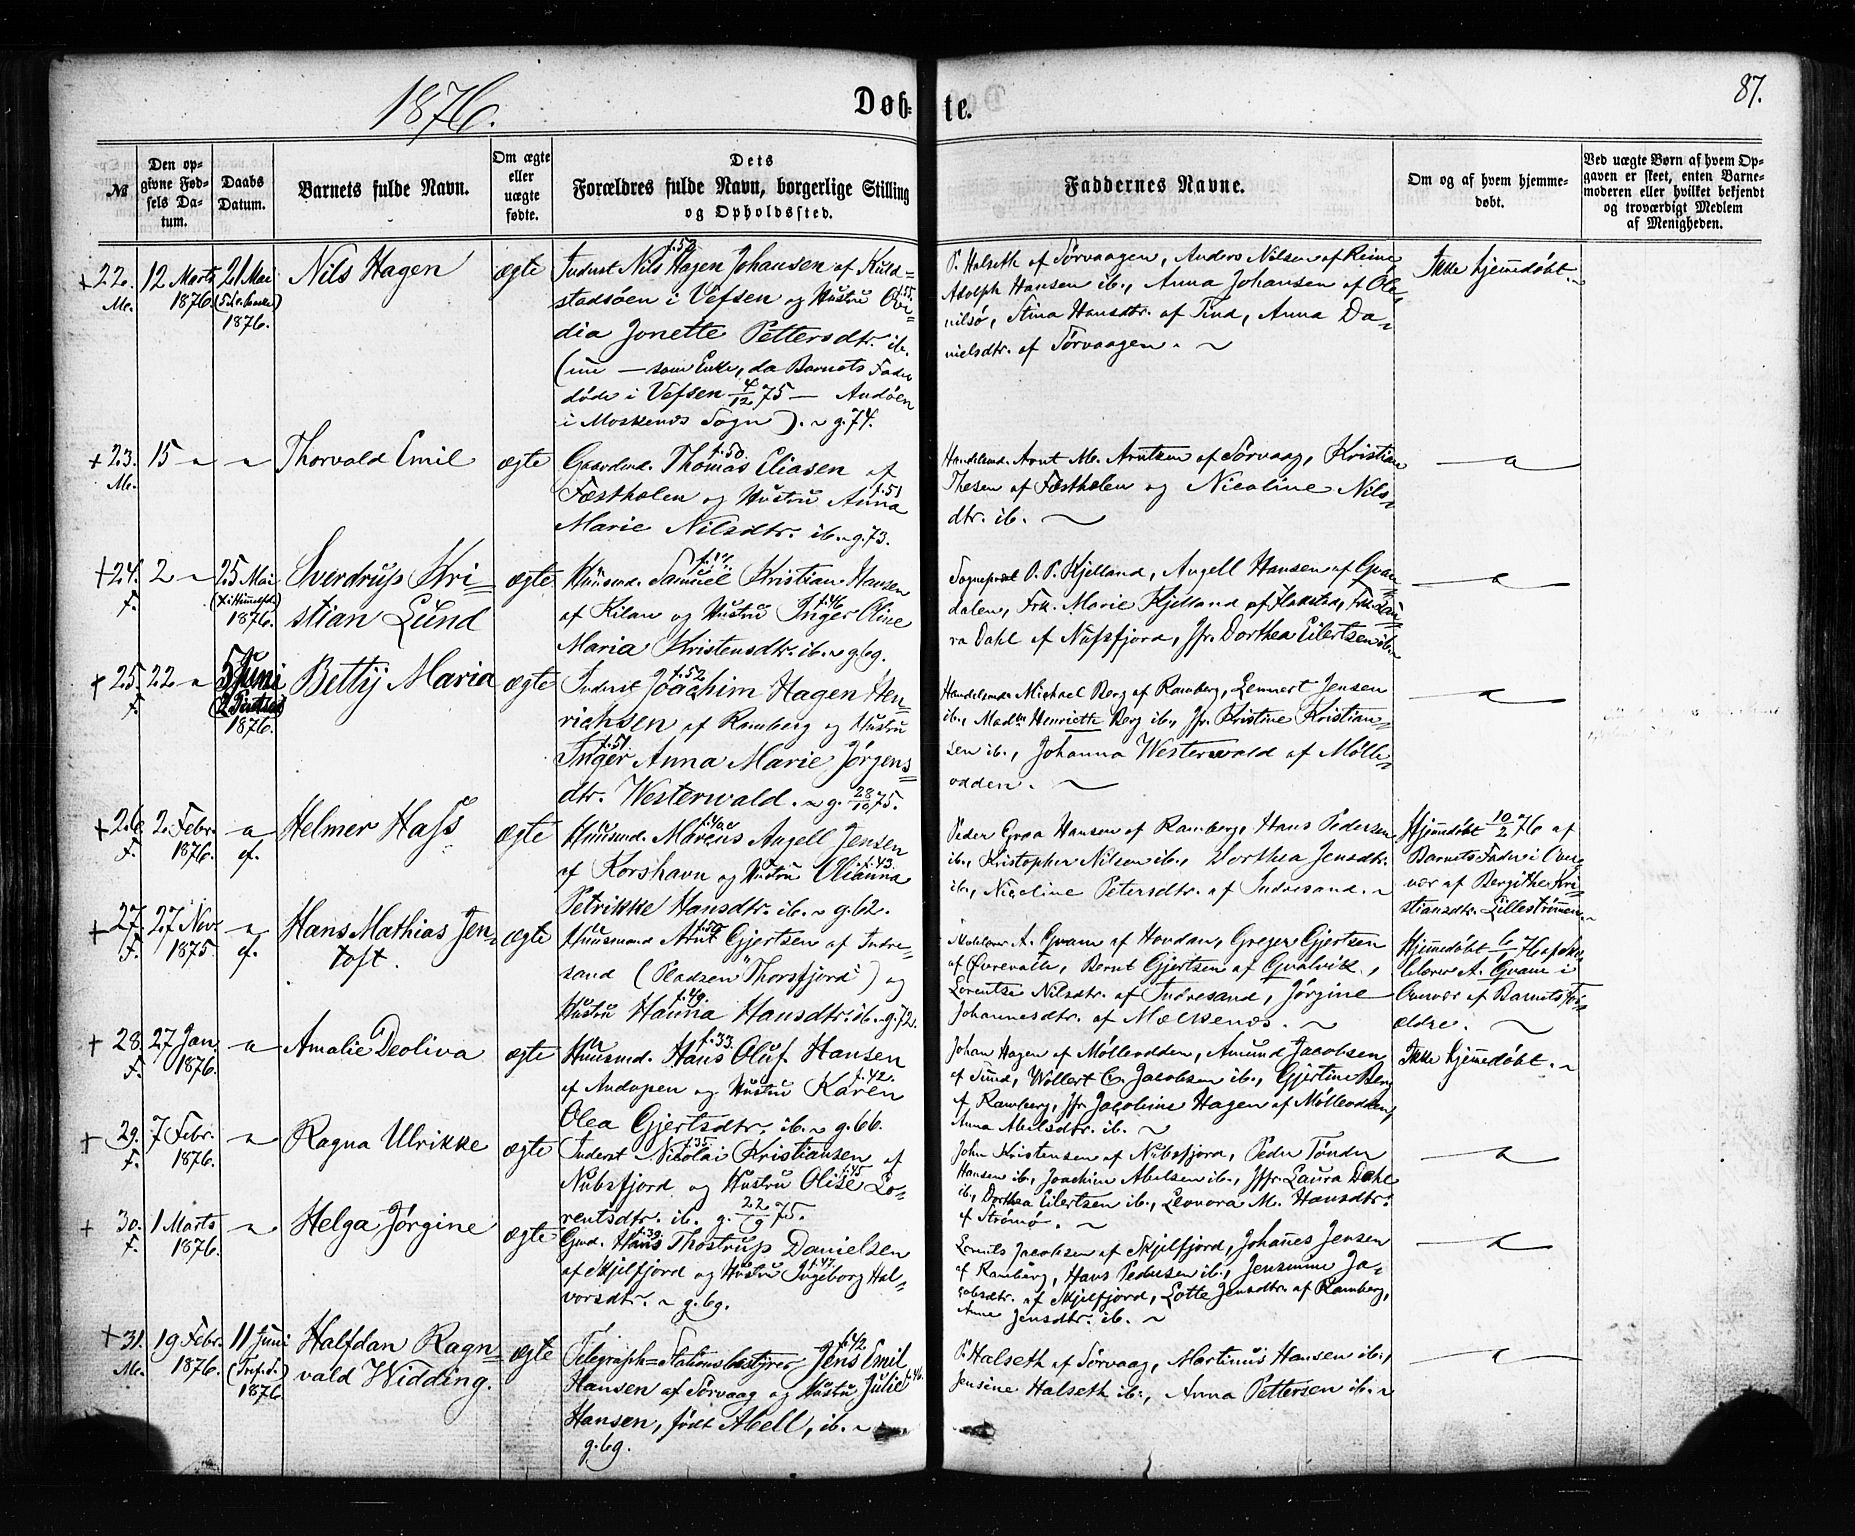 1876.
Døbte.
87.
№
Den opgivne Fødsels Datum.
Daabs Datum.
Barnets fulde Navn.
Om ægte eller uægte fødte.
Dets Forældres fulde Navn, borgerlige Stilling og Opholdssted.
Faddernes Navne.
Om og af hvem hjemmedøbt.
Ved uægte Børn af hvem Opgaven er skeet, enten Barnemoderen eller hvilket bekjendt og troværdigt Medlem af Menigheden.
+ 22. Me.
12 Marts 1876.
21 Mai 1876.
Nils Hagen
ægte
Inderst Nils Hagen Johansen af Kuld=
f. 52
stadsøen i Vefsen og Hustru
f. 55.
dia Jonette Pettersdtr. ib.
(nu — som Enke, da Barnets Fader
døde i Vefsen 4/12 75 — Andøen
i Moskenes Sogn). ~ g. 74.
P. Halseth af Sørvaagen, Anders Nilsen af Reine
Adolph Hansen ib., Anna Johansen af Ole=
nilsø, Stina Hansdtr. af Tind, Anna Da=
nielsdtr. af Sørvaagen. ~
Ikke hjemmedøbt. ~
+ 23. Me.
15 "
"
Thorvald Emil
ægte
Gaardmd. Thomas Eliasen af
f. 50
Fæsthælen og Hustru Anna
f. 51
Marie Nilsdtr. ib. ~ g. 73.
Handelsmd. Arnt M. Arntsen af Sørvaag, Kristian
Thesen af Fæsthælen og Nicoline Nils=
dtr. ib. ~
"
+ 24. F.
2 "
25 Mai 1876.
Sverdrup Kri=
stian Lund
ægte
Huusmd. Samuel Kristian Hansen
af Kilan og Hustru Inger Oline
f. 46
Maria Kristensdtr. ib. ~ g. 69.
Sognepræst O. P. Kjelland, Angell Hansen af Qvan=
dalen, Frk. Marie Kjelland af Flakstad, Frk. Lau=
ra Dahl af Nufsfjord, Jfr. Dorthea Eilertsen ib. ~
"
+ 25. F.
22 "
5 Juni
(2 Pintsed.)
1876.
Bettÿ Maria
ægte
Inderst Joachim Hagen Hen=
f. 52
richsen af Ramberg og Hustru
Inger Anna Marie Jørgens=
f. 51
dtr. Westerwald. ~ g. 28/10 75.
Handelsmd. Michael Berg af Ramberg, Lennert Jensen
ib., Madm. Henriette Berg ib., Jfr. Kristine Kristian=
sen ib., Johanna Westerwald af Mølle=
odden. ~
"
+ 26. F.
2. Febr. 1876.
" ef.
Helmer Hass
ægte
Huusmd. Marcus Angell Jensen
af Korshavn og Hustru Olianna
f. 43.
Petrikke Hansdtr. ib. ~ g. 62.
Peder Græa Hansen af Ramberg, Hans Pedersen
ib., Kristopher Nilsen ib., Dorthea Jensdtr.
ib., Nicoline Petersdtr. af Indresand. ~
Hjemmedøbt 10/2 76 af
Barnets Fader i Over=
vær af Bergithe Kri=
stiansdtr. Lillestrømmen. ~
+ 27. F.
27 Nov. 1875.
" ef.
Hans Mathias Jen=
toft.
ægte
Huusmand Arnt Gjertsen af Indre=
sand (Pladsen "Thorsfjord") og
Hustru Hanna Hansdtr. ib. ~ g. 72.
f. 49.
A. Qvam af Hovdan, Greger Gjertsen
af Øvrevatle, Bernt Gjertsen af Qvalvik,
Lorentse Nilsdtr. af Indresand, Jørgine
Johannesdtr. af Mølkenes. ~
Hjemmedøbt 6/1 76 af Sko=
lelærer A. Qvam i
Overvær af Barnets For=
ældre. ~
+ 28. F.
27 Jan. 1876.
"
Amalie Deoliva
ægte
Huusmd. Hans Oluf Hansen
f. 33.
af Andopen og Hustru Karen
f. 42.
Olea Gjertsdtr. ib. ~ g. 66.
Johan Hagen af Mølleodden, Amund Jacobsen
af Sund, Wollert C. Jacobsen ib., Gjertine Berg
af Ramberg, Jfr. Jacobine Hagen af Mølleodden,
Anna Abelsdtr. ib. ~
Ikke hjemmedøbt. ~
+ 29. F.
7 Febr. 1876.
"
Ragna Ulrikke
ægte
Inderst Nikolai Kristiansen af
f. 35.
Nubsfjord og Hustru Olise Lo=
f. 45
rentsdtr. ib. g. 22/9 75.
John Kristensen af Nubsfjord, Peder Tønder
Hansen ib., Joachim Abelsen ib., Jfr. Laura Dahl
ib., Dorthea Eilertsen ib., Leonora M. Hansdtr.
af Strømø. ~
"
+ 30. F.
1 Marts 1876.
"
Helga Jørgine
ægte
Gmd. Hans Thostrup Danielsen
f. 39.
af Skjelfjord og Hustru Ingeborg Hal=
f. 47.
vorsdtr. ~ g. 69.
Jacobsen af Skjelfjord, Johannes Jensen
af Ramberg, Hans Pedersen ib., Jensine Ja=
cobsdtr. af Skjelfjord, Lotte Jensdtr. af Ramberg,
Anne Jensdtr. ib. ~
"
+ 31. Me.
19 Febr. 1876.
11 Juni
(Tref. S.)
1876.
Halfdan Ragn=
vald Widding.
ægte
Telegraph=Stationsbestyrer Jens Emil
f. 42
Hansen af Sørvaag og Hustru Julie
f. 46.
Hansen, født Abell, ib. ~
g. 69.
P. Halseth af Sørvaag, Martinus Hansen ib.,
Jensine Halseth ib., Anna Pettersen ib. ~
"